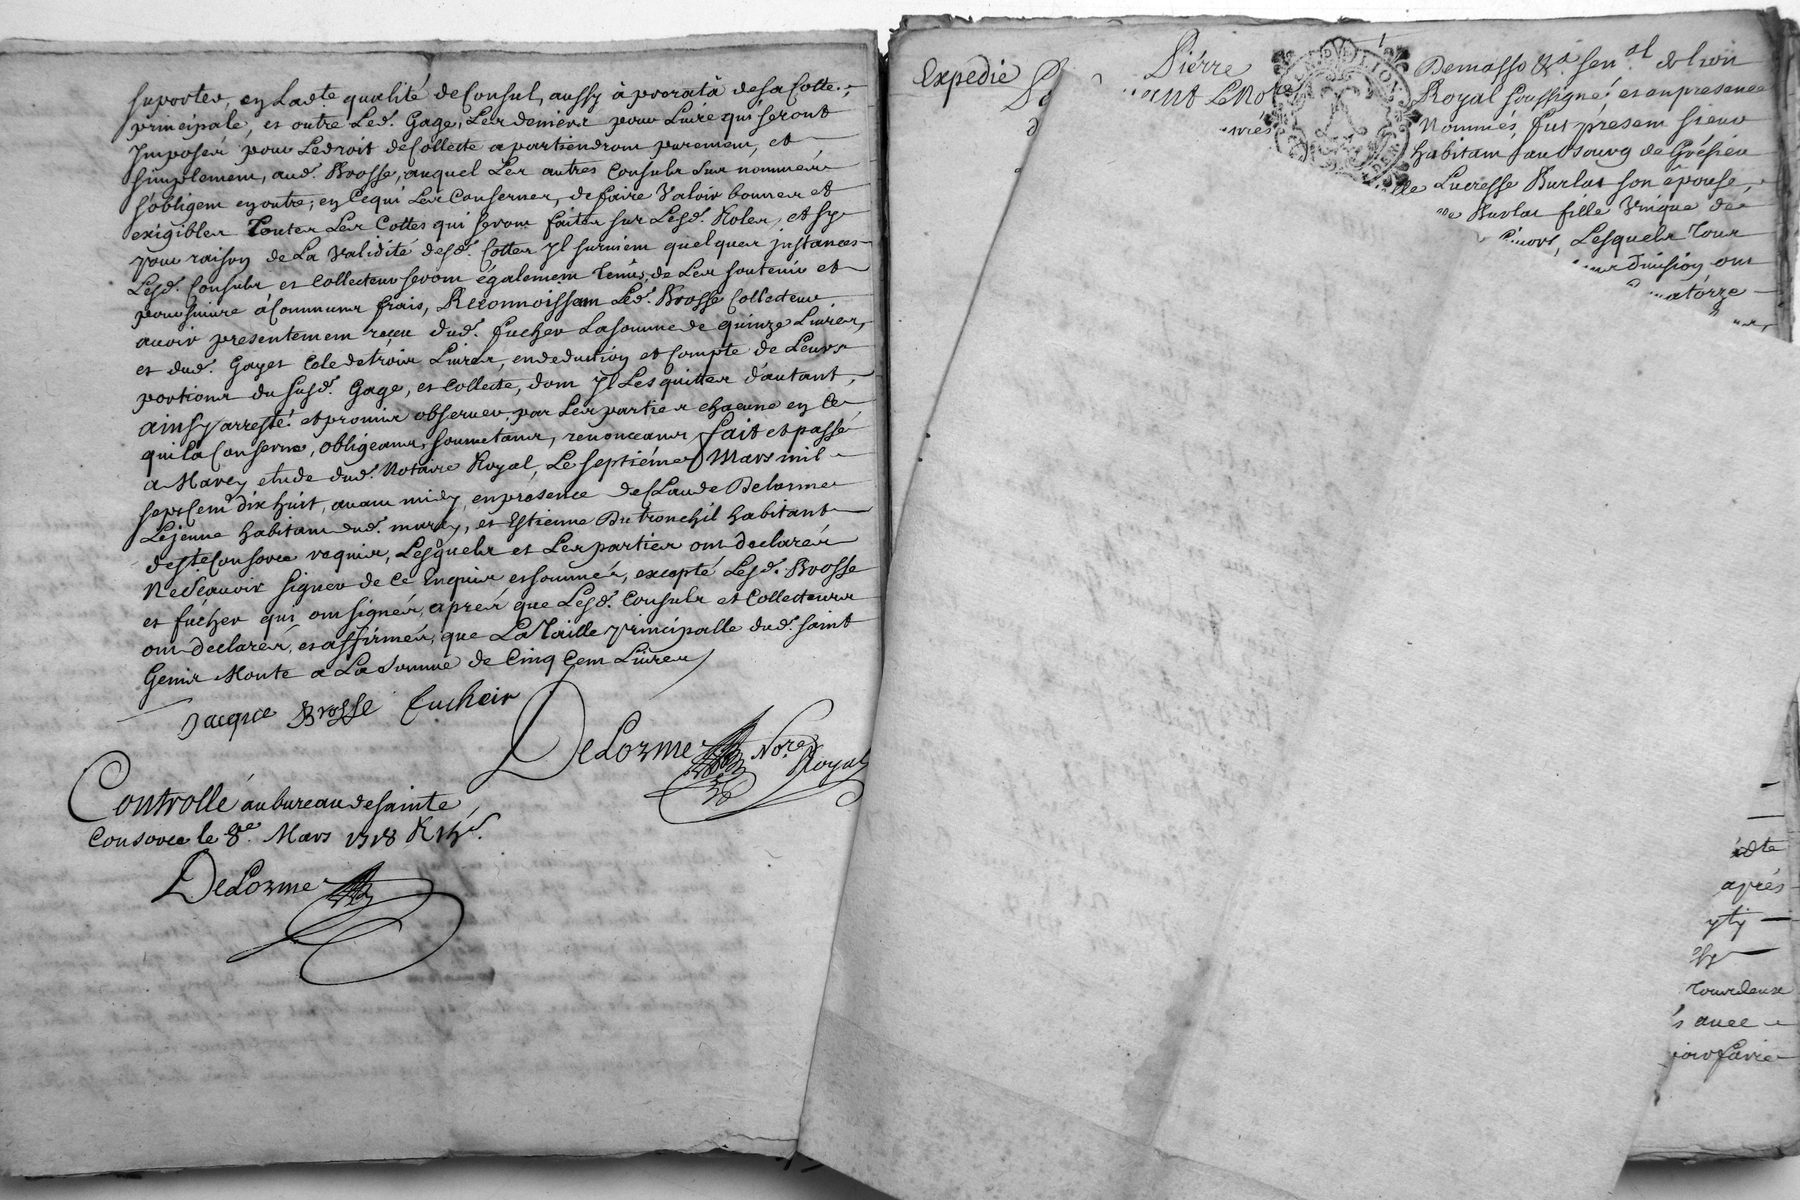 suporter, en Ladte qualité de Consul, aussy à prorata de sa Cotte
principale, et outre Led. Gage, Les deniers pour Livre qui seront
Imposés pour Le droit de Collecte apartiendront purement, et
simplement, aud. Brosse, auquel Les autres Consuls sus nommés
s'obligent en outre, en Ce qui Les Conserner, de faire Valoir bonnes et
exigibles Toutes Les Cottes qui seront faites sur Lesd. Roles, et sy
pour raison de La Validité desd. Cottes yl survient quelques instances
Lesd. Consuls et Collecteur seront également Tenus, de Les soutenir et
poursuivre à Communs frais, Reconnoissant Led. Brosse Collecteur
avoir presentement receu dud. fucher La somme de quinze Livres,
et dud. Gayet Cele de trois Livres, en deduction et Compte de Leurs
portions du susd. Gage, et Collecte, dont yl Les quitter d'autant,
ainsy arresté et promis observer par Les parties chacune en Ce
qui la Conserne, obligeans, soumetans, renonceans fait et passé
a Marcy etude dud. Notaire Royal, Le septiéme Mars mil
sept Cent dix huit, avant midy, en presence de Claude Delorme
Lejeune habitant dud. marcy, et Estienne Dutronchil habitant
de ste Consorce requis, Lesquels et Les parties ont declarés
Ne sçavoir signer de Ce Enquis et sommés, excepté Lesd. Brosse
et fucher qui ont signés, aprés que Lesd. Consuls et Collecteurs
ont declarés, et affirmés, que La Taille principalle dud. saint
Genis Monte a La somme de Cinq Cent Livres
Jacque Brosse fucheir
DeLorme Nore
Royal
Controllé au bureau de sainte
Consorce le 8e Mars 1718
DeLorme
Expedie
Pierre Demasso senal. de Lion
Royal soussigné, et en presence
Nommés, fut present sieur
habitant au bourg de Grésieu
Lucresse Burlat son épouse,
Burlat fille Unique de
Lesquels Tour
division ont
quatorze
dte
aprés
yty
avec